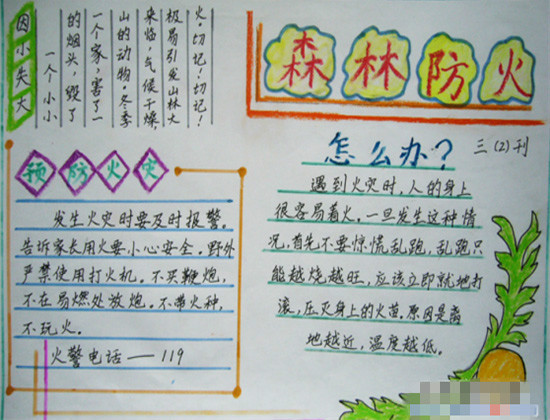 森林防火
三(2)刊
因小失大
一个小小
的烟头,毁了
一个家,害了一
山的动物。冬季
来临,气候干燥,
极易引发山林大
火。切记!切记!
预防火灾
发生火灾时要及时报警。
告诉家长用火要小心安全。野外
严禁使用打火机。不买鞭炮,
不在易燃处放炮。不带火种,
不玩火。
火警电话——119
怎么办?
遇到火灾时,人的身上
很容易着火。一旦发生这种情
况,首先不要惊慌乱跑,乱跑只
能越烧越旺,应该立即就地打
滚,压灭身上的火苗.原因是离
地越近,温度越低。